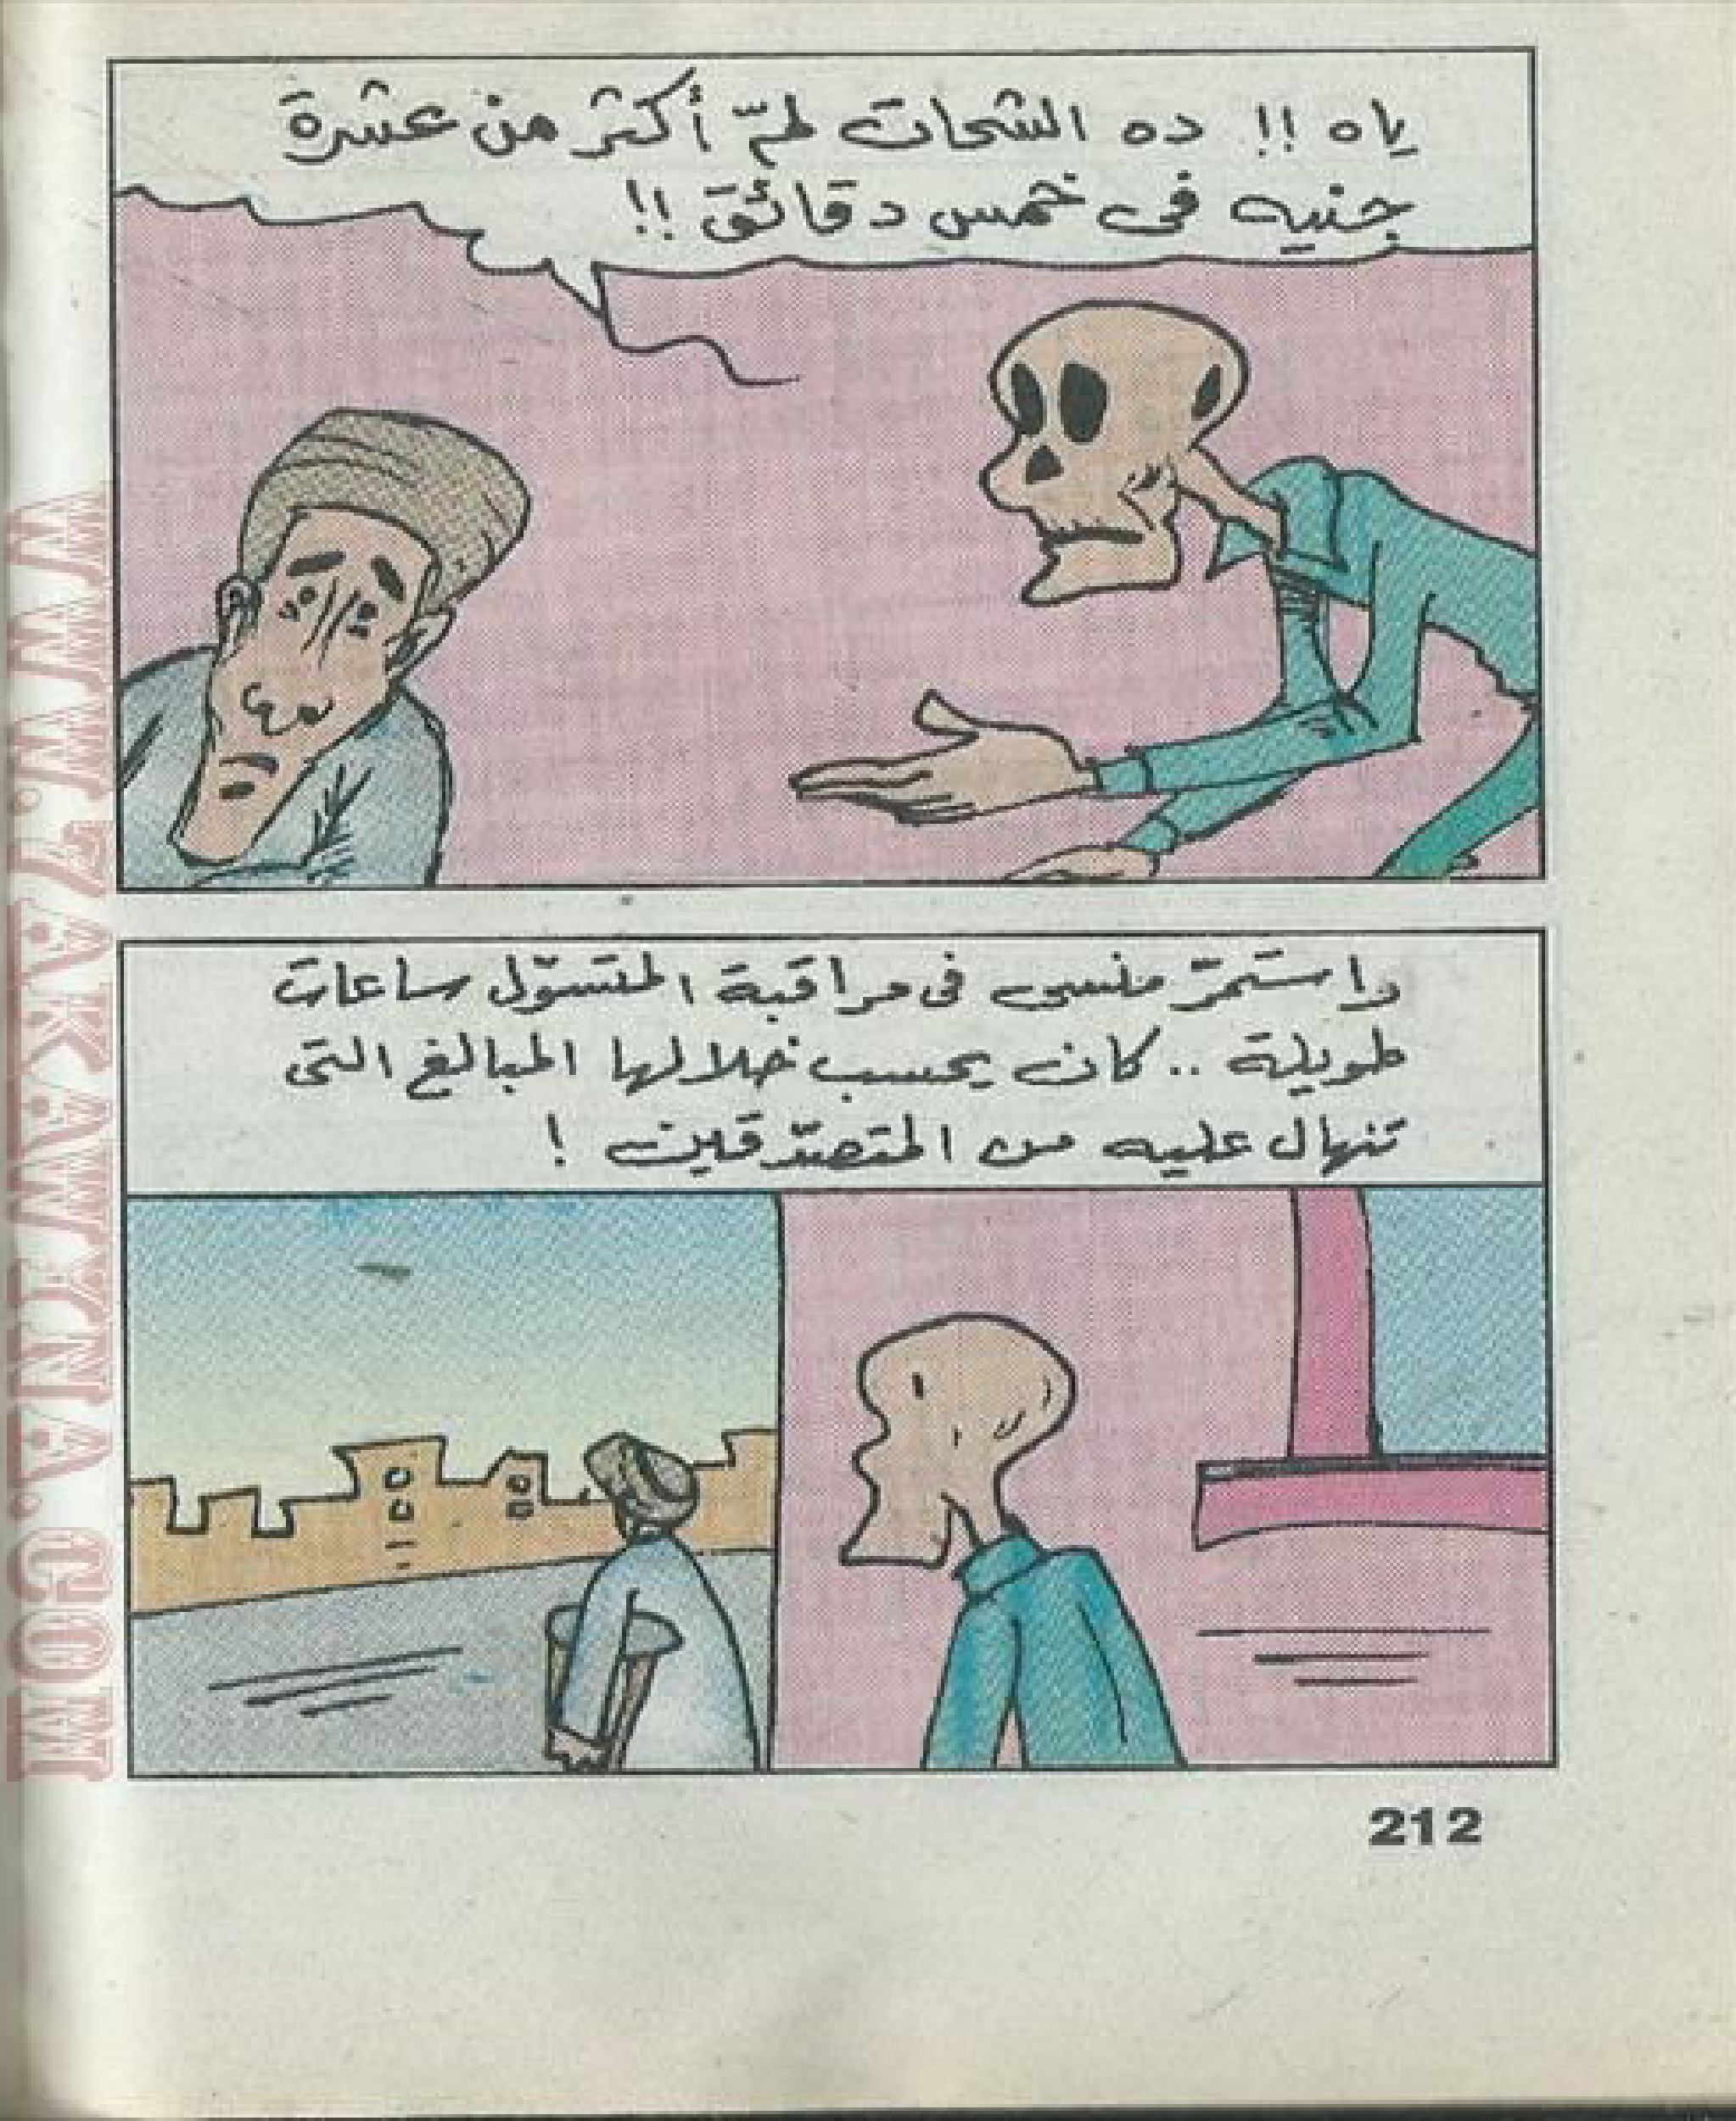 ياه !! ده الشحات لمّ أكتر من عشرة
جنيه فى خمس دقائق !!
واستمرّ منسى فى مراقبة المتسوّل ساعات
طويلة .. كان يحسب خلالها المبالغ التى
تنهال عليه من المتصدّقين !
212
WWW.ZAKAWINA.COM